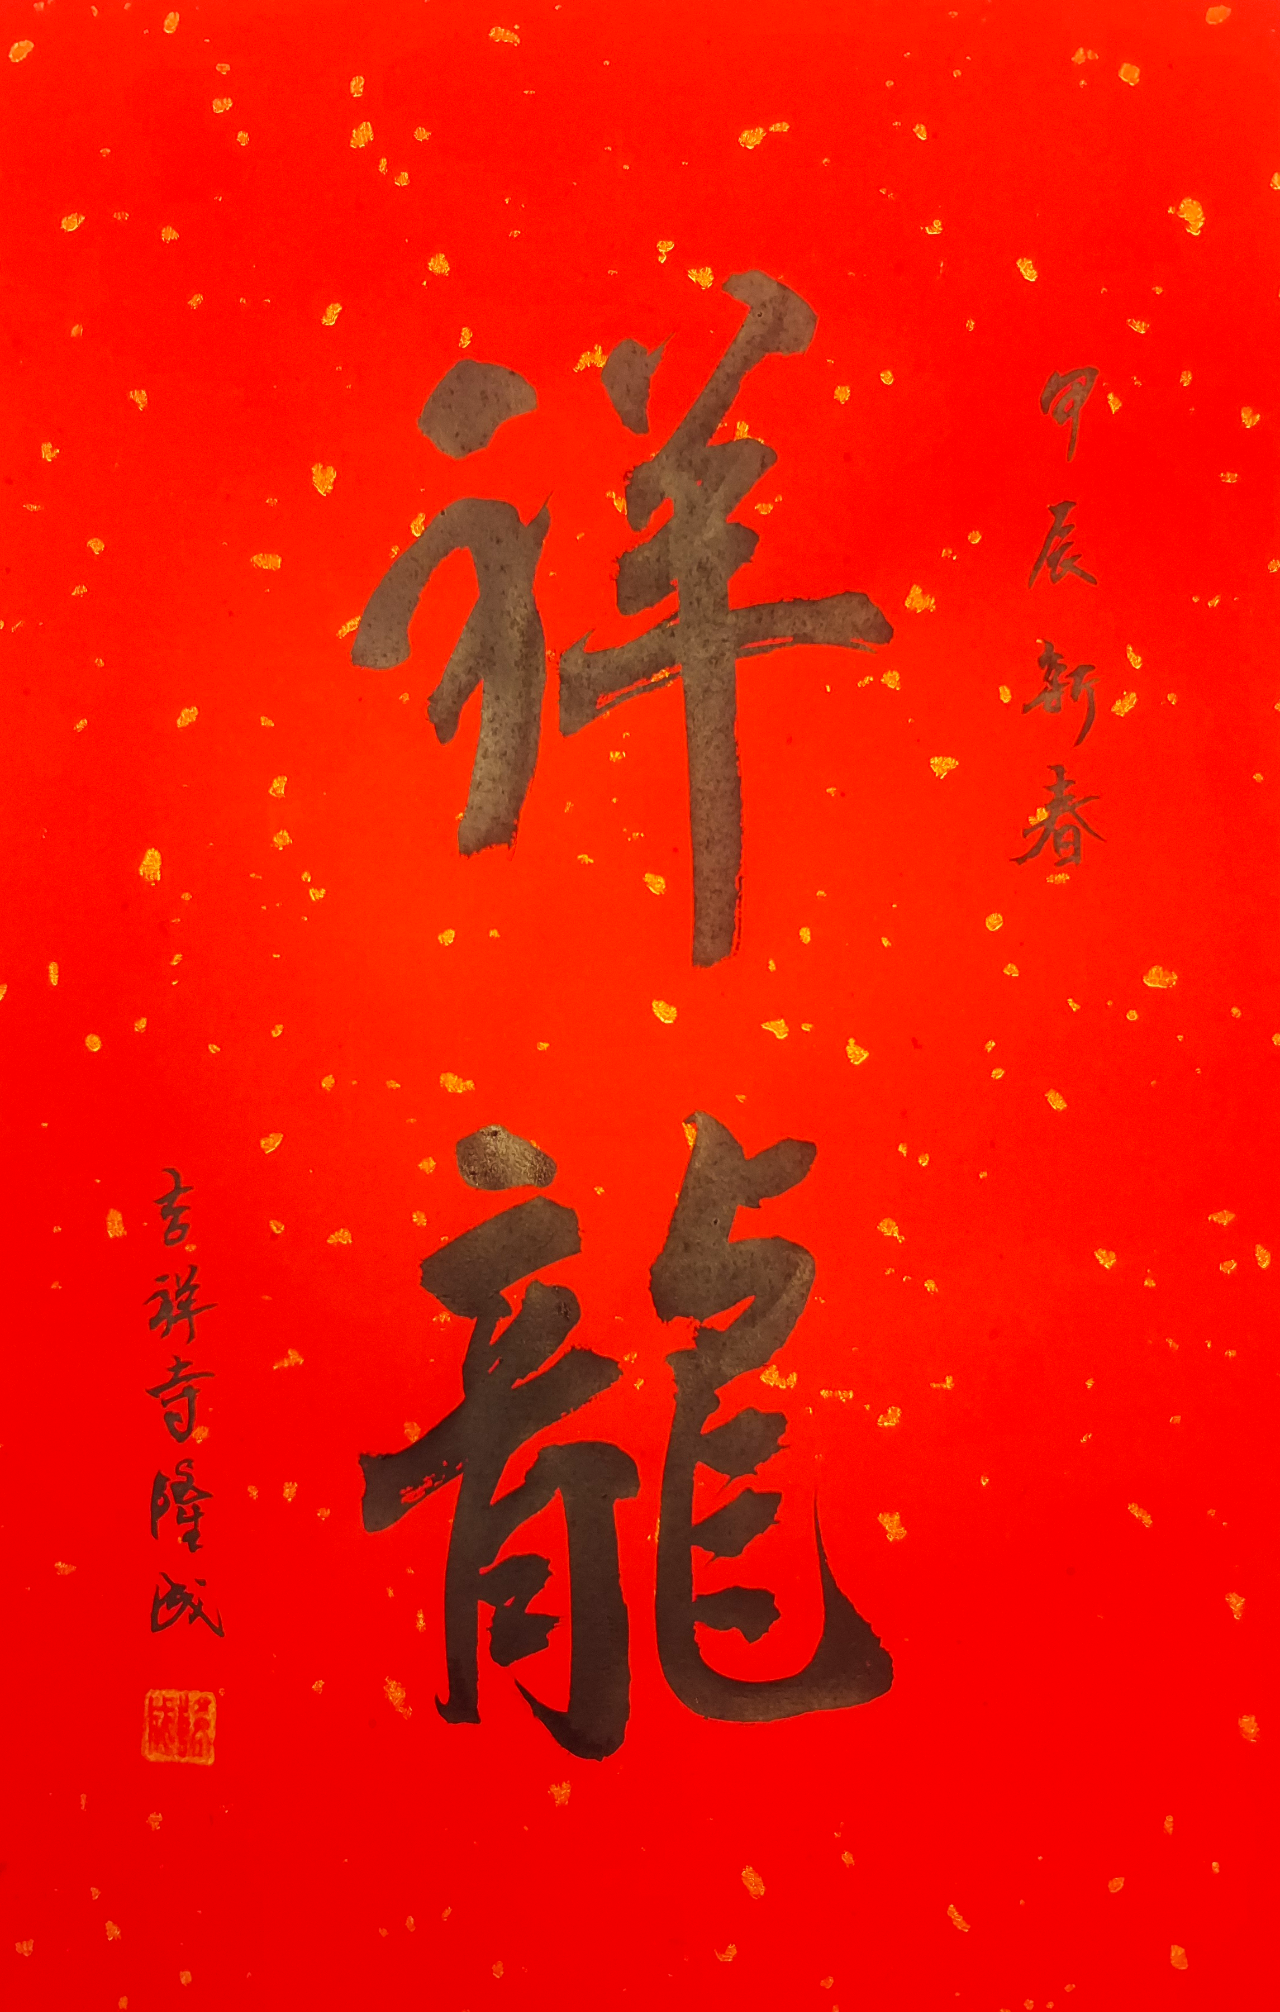 甲辰新春
祥龍
吉祥寺隆成